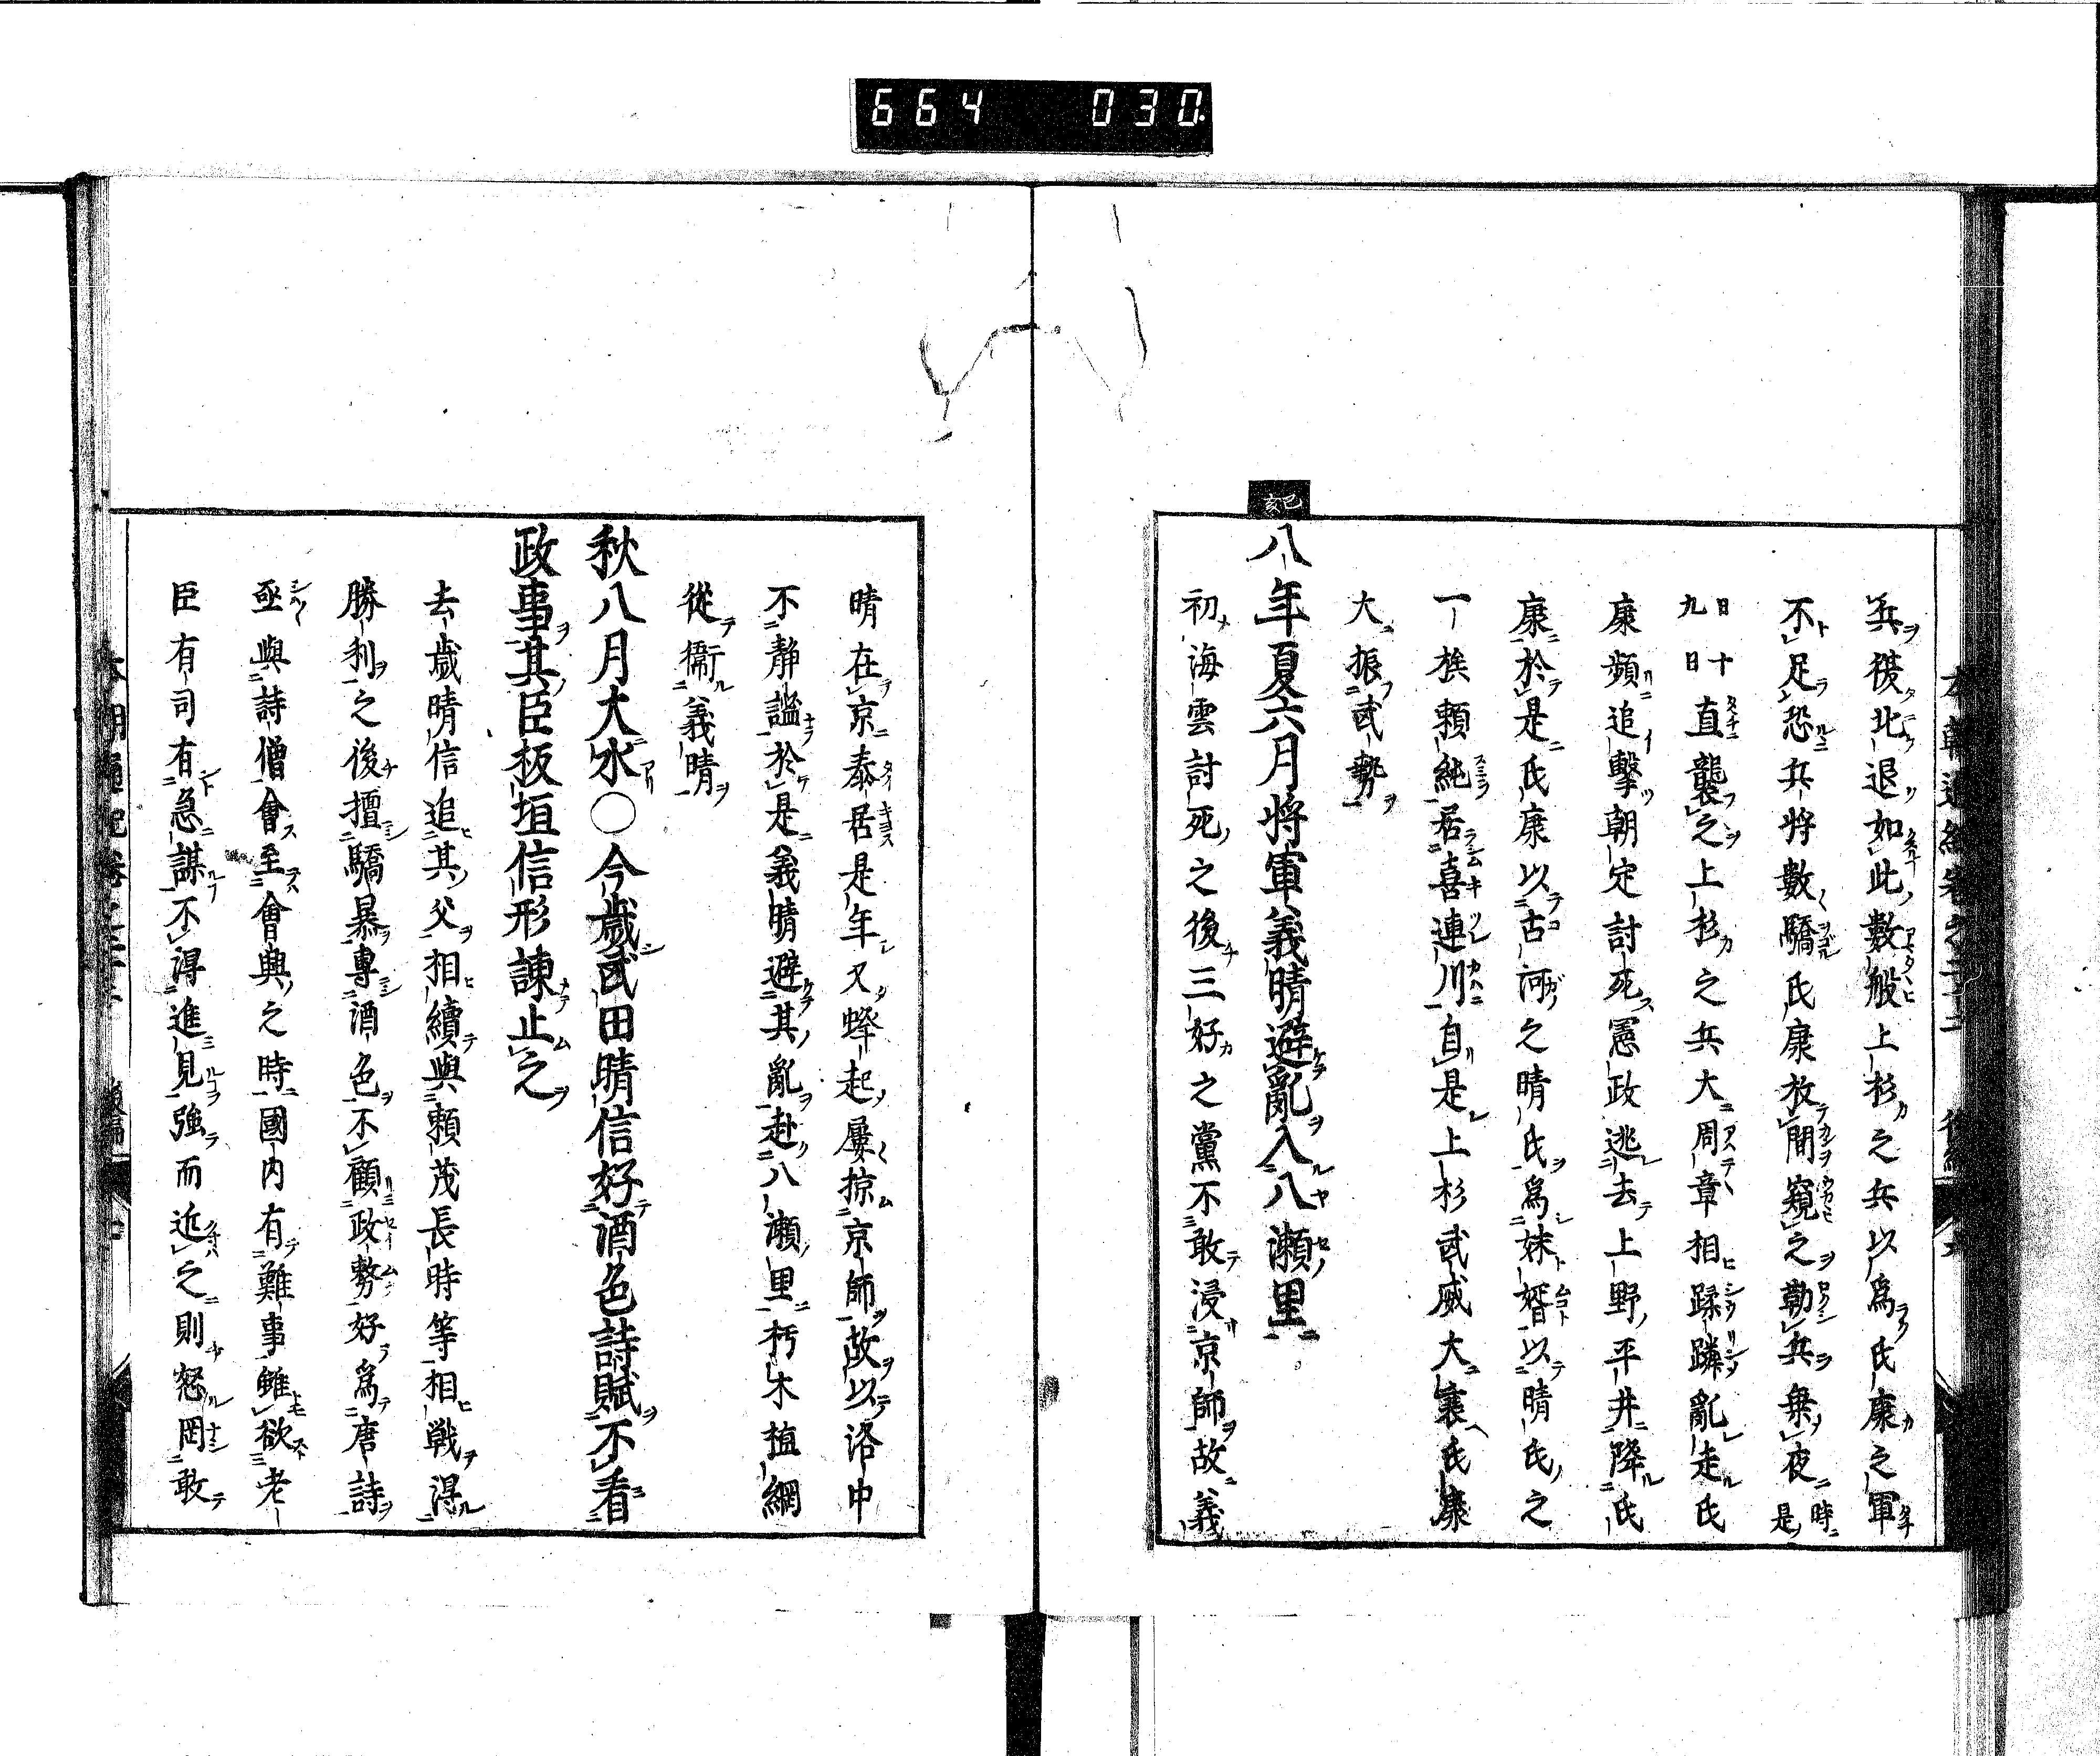 664 030
兵後北退如此數般上杉之兵以爲氏康之軍
不足恐兵將數驕氏康放間窺之勒兵乗夜 時是
九日十日直襲之上杉之兵大周章相蹂躙亂走氏
康頻追擊朝定討死憲政逃去上野平井降氏
康於是氏康以古河之晴氏爲妹婿以晴氏之
一族頼純居喜連川自是上杉武威大衰氏康
大振武勢
己亥
八年夏六月將軍義晴避亂入八瀬里
初海雲討死之後三好之黨不敢浸京師故義
晴在京泰居是年又蜂起屢掠京師故以洛中
不静謐於是義晴避其亂赴八瀬里朽木植綱
從衞義晴
秋八月大水○今歳武田晴信好酒色詩賦不看
政事其臣板垣信形諌止之
去歳晴信追其父相續與頼茂長時等相戦得
勝利之後擅驕暴專酒色不顧政務好爲唐詩
亟與詩僧會至會興之時國内有難事雖欲老
臣有司有急謀不得進見強而近之則怒罔敢